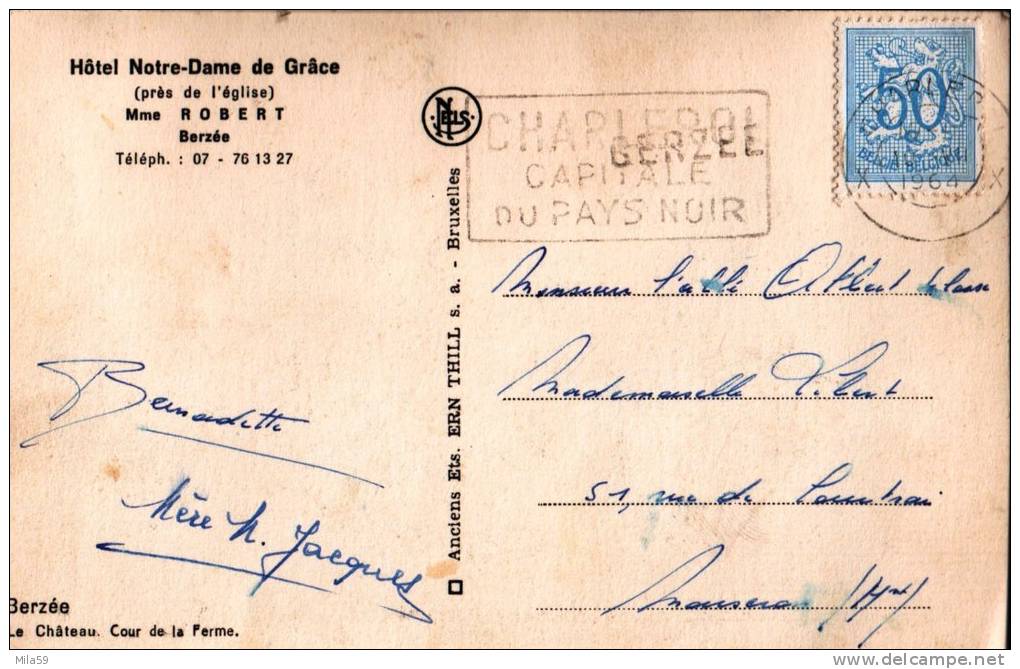 Hôtel Notre-Dame de Grâce
(près de l'église)
Mme ROBERT
Berzée
Téléph. : 07 - 76 13 27
NELS
CHARLEROI
GERZEE
CAPITALE
DU PAYS NOIR
50
BELGIE BELGIQUE
1964
X X
Anciens Ets. ERN THILL s. a. - Bruxelles
Monsieur l'abbé Albert
Mademoiselle
51, rue de
Mouscron /Hnt/
Bernadette
Mère M. Jacques
Berzée
Le Château. Cour de la Ferme.
Mila59
http://www.delcampe.net